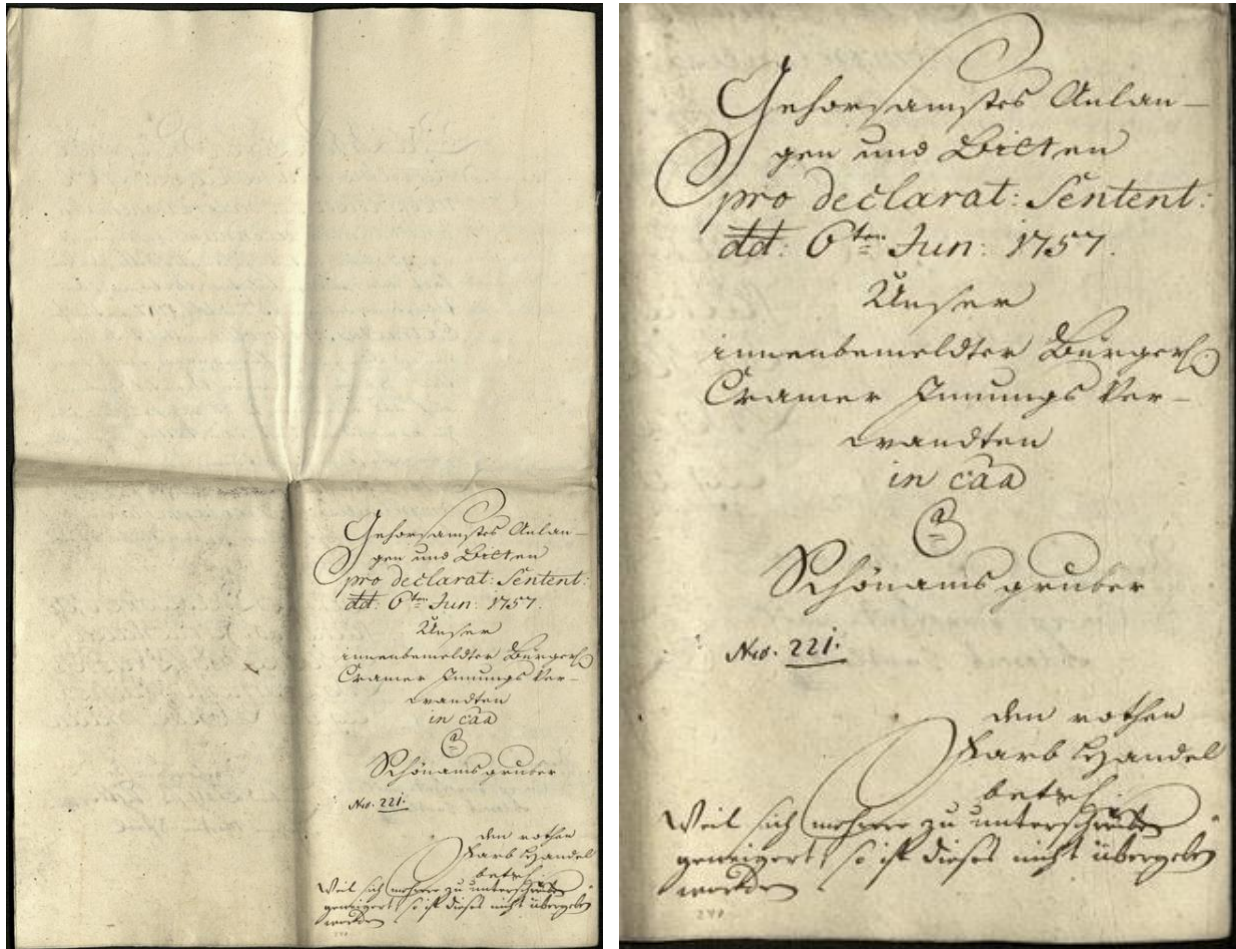 Gehorsamstes Anlan-
gen und Bitten
pro declarat: Sentent:
dd: 6ten Jun: 1757.
Unser
innenbemeldter Bürgerl.
Cramer Innungs Ver-
wandten
in caa
Schönamsgruber
Nro. 221.
den rothen
Farb Handel
betrh:
Weil sich mehrere zu unterschreiben
geweigert, so ist dieses nicht übergeben
worden
Gehorsamstes Anlan-
gen und Bitten
pro declarat: Sentent:
dd: 6ten Jun: 1757.
Unser
innenbemeldter Bürgerl.
Cramer Innungs Ver-
wandten
in caa
Schönamsgruber
Nro. 221.
den rothen
Farb Handel
betrh:
Weil sich mehrere zu unterschreiben
geweigert, so ist dieses nicht übergeben
worden